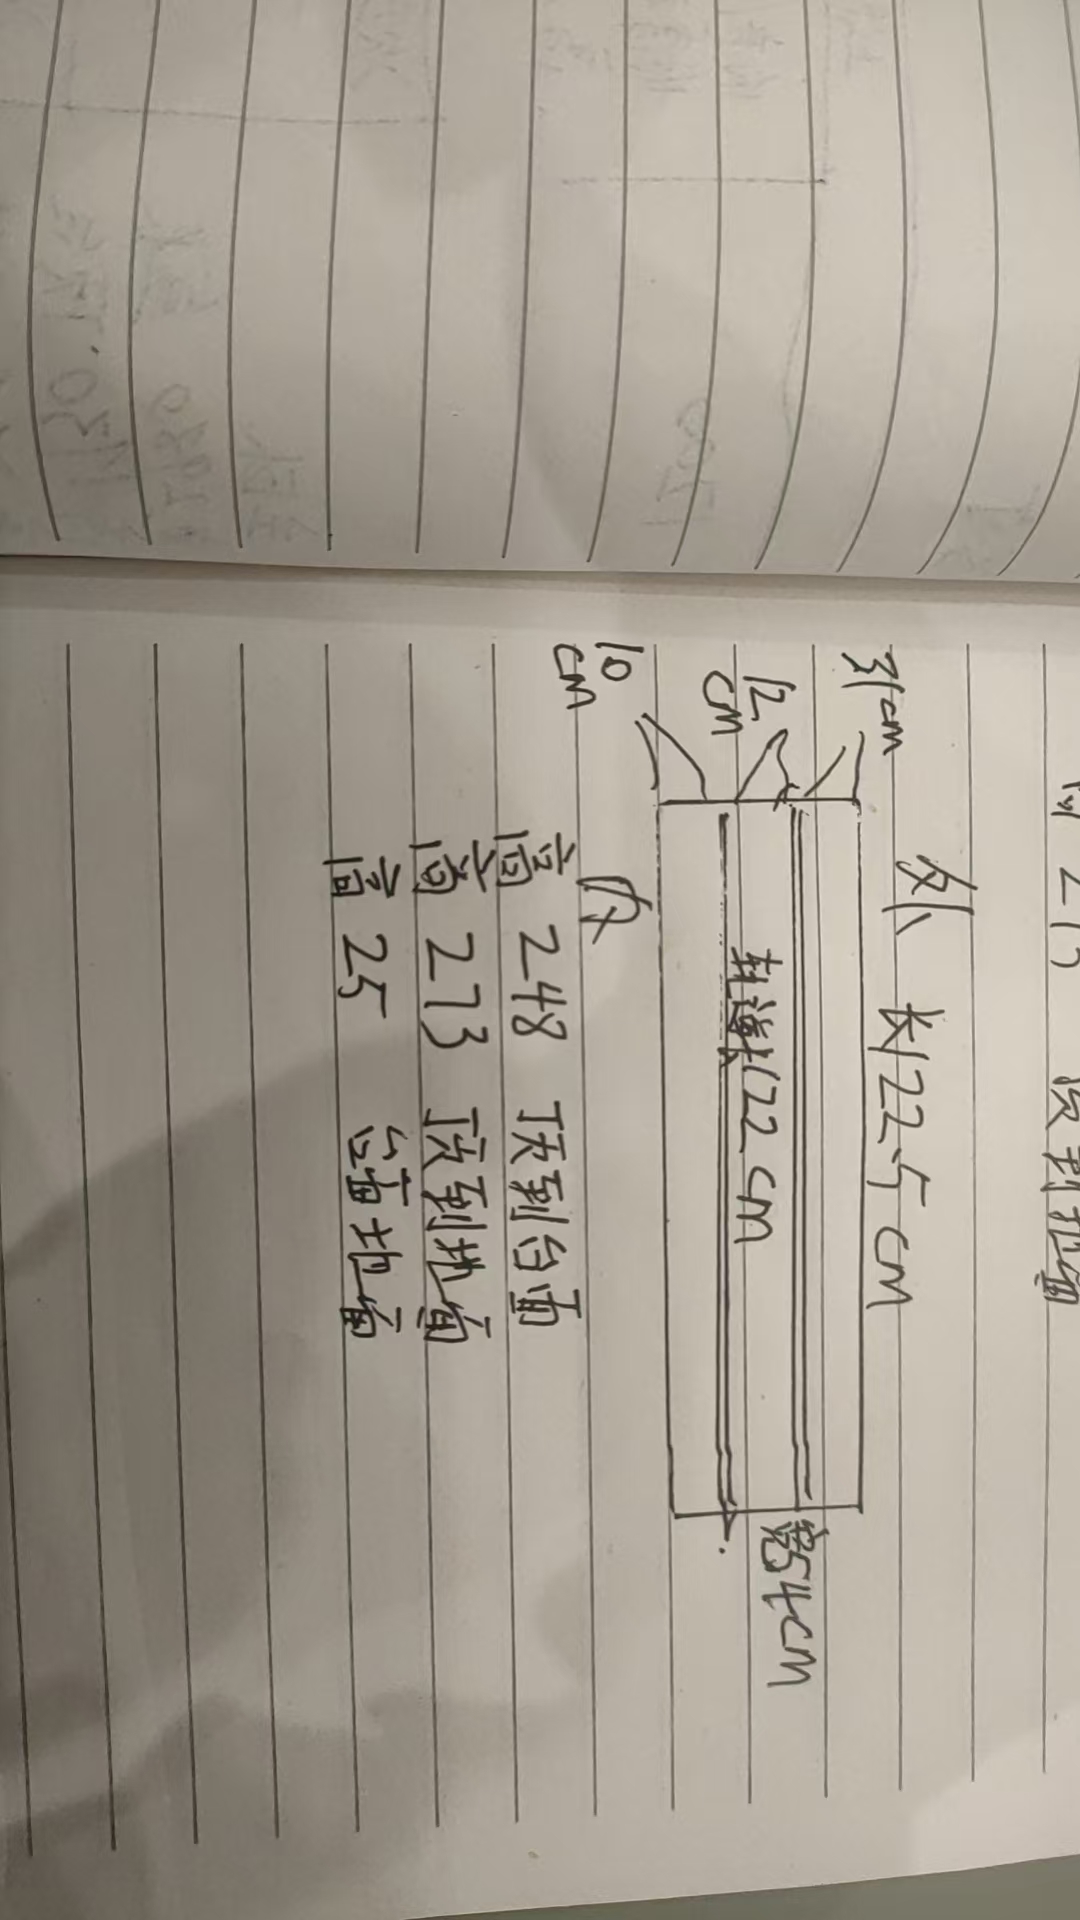 高 273 顶到地面
外 长122.5cm
31cm
12
cm
轨道长122cm
宽54cm
10
cm
内
高 248 顶到台面
高 273 顶到地面
高 25 台面地面